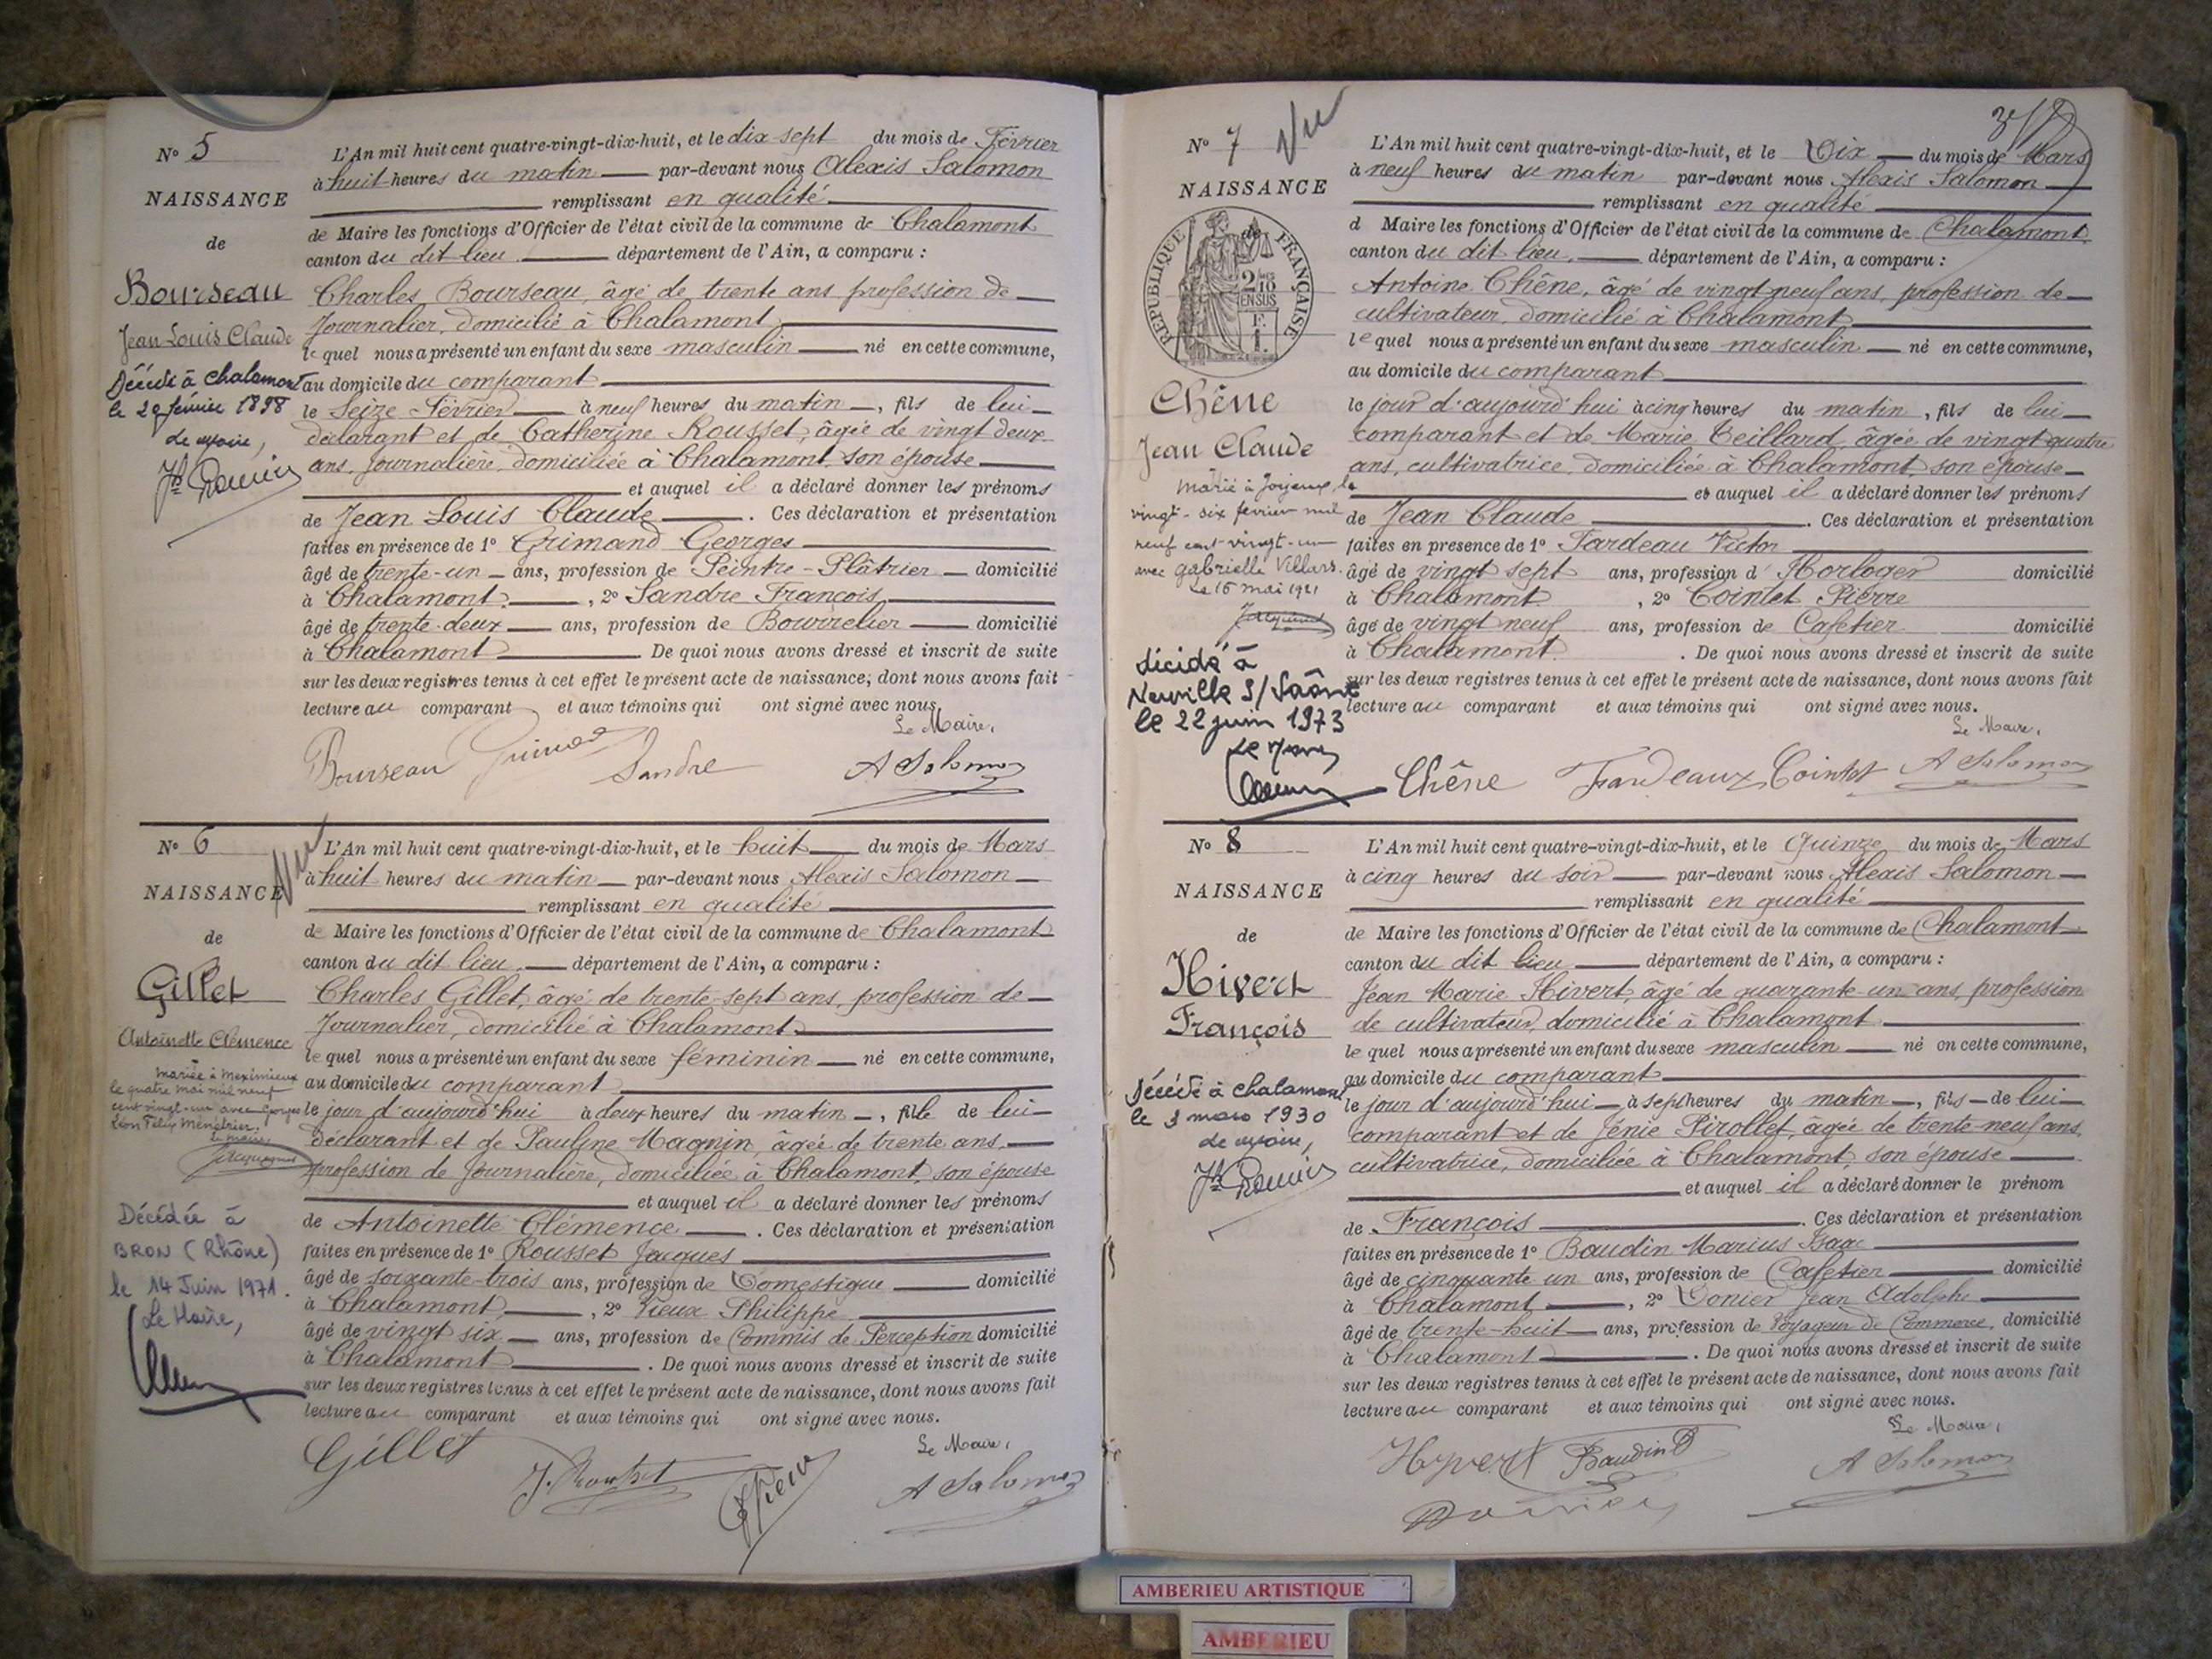 N° 5
NAISSANCE
de
Bourseau
Jean Louis Claude
Décédé à Chalamont
le 29 février 1898
Le Maire,
L'An mil huit cent quatre-vingt-dix-huit, et le dix sept du mois de Février
à huit heures du matin par-devant nous Alexis Salomon
remplissant en qualité
de Maire les fonctions d'Officier de l'état civil de la commune de Chalamont
canton du dit lieu département de l'Ain, a comparu :
Charles Bourseau, âgé de trente ans profession de
Journalier, domicilié à Chalamont
le quel nous a présenté un enfant du sexe masculin né en cette commune,
au domicile du comparant
le Seize Février à neuf heures du matin, fils de lui
déclarant et de Catherine Rousset, âgée de vingt deux
ans, Journalière, domiciliée à Chalamont, son épouse
et auquel il a déclaré donner les prénoms
de Jean Louis Claude. Ces déclaration et présentation
faites en présence de 1° Grimand Georges
âgé de trente-un ans, profession de Peintre-Plâtrier domicilié
à Chalamont, 2° Sandre François
âgé de trente-deux ans, profession de Bourrelier domicilié
à Chalamont De quoi nous avons dressé et inscrit de suite
sur les deux registres tenus à cet effet le présent acte de naissance; dont nous avons fait
lecture au comparant et aux témoins qui ont signé avec nous.
Le Maire,
Bourseau Grimand Sandre A Salomon
N° 6
Vu
NAISSANCE
de
Gillet
Antoinette Clémence
Mariée à Meximieux
le quatre mai mil neuf
cent vingt-un avec Georges
Léon Félix Menétrier.
Le Maire,
Décédée à
BRON (Rhône)
le 14 Juin 1971.
Le Maire,
L'An mil huit cent quatre-vingt-dix-huit, et le huit du mois de Mars
à huit heures du matin par-devant nous Alexis Salomon
remplissant en qualité
de Maire les fonctions d'Officier de l'état civil de la commune de Chalamont
canton du dit lieu, département de l'Ain, a comparu :
Charles Gillet, âgé de trente-sept ans, profession de
Journalier, domicilié à Chalamont
le quel nous a présenté un enfant du sexe féminin né en cette commune,
au domicile du comparant
le jour d'aujourd'hui à deux heures du matin, fille de lui
déclarant et de Pauline Magnin, âgée de trente ans,
profession de Journalière, domiciliée à Chalamont, son épouse
et auquel il a déclaré donner les prénoms
de Antoinette Clémence. Ces déclaration et présentation
faites en présence de 1° Rousset Jacques
âgé de soixante-trois ans, profession de Domestique domicilié
à Chalamont, 2° Vieux Philippe
âgé de vingt six ans, profession de Commis de Perception domicilié
à Chalamont. De quoi nous avons dressé et inscrit de suite
sur les deux registres tenus à cet effet le présent acte de naissance, dont nous avons fait
lecture au comparant et aux témoins qui ont signé avec nous.
Le Maire,
Gillet J. Rousset A Salomon
N° 7
Vu
NAISSANCE
de
RÉPUBLIQUE FRANÇAISE
2/10
EN SUS
F.
1.
Chêne
Jean Claude
Marié à Joyeux, le
vingt-six février mil
neuf cent vingt-un
avec Gabrielle Villars.
Le 16 mai 1921
décédé à
Neuville S/Saône
le 22 juin 1973
Le Maire
L'An mil huit cent quatre-vingt-dix-huit, et le Dix du mois de Mars
à neuf heures du matin par-devant nous Alexis Salomon
remplissant en qualité
d Maire les fonctions d'Officier de l'état civil de la commune de Chalamont
canton du dit lieu, département de l'Ain, a comparu :
Antoine Chêne, âgé de vingt neuf ans, profession de
cultivateur, domicilié à Chalamont
le quel nous a présenté un enfant du sexe masculin né en cette commune,
au domicile du comparant
le jour d'aujourd'hui à cinq heures du matin, fils de lui
comparant et de Marie Teillard, âgée de vingt quatre
ans, cultivatrice, domiciliée à Chalamont, son épouse
et auquel il a déclaré donner les prénoms
de Jean Claude. Ces déclaration et présentation
faites en présence de 1° Fardeau Victor
âgé de vingt sept ans, profession d'Horloger domicilié
à Chalamont, 2° Cointet Pierre
âgé de vingt neuf ans, profession de Cafetier domicilié
à Chalamont. De quoi nous avons dressé et inscrit de suite
sur les deux registres tenus à cet effet le présent acte de naissance, dont nous avons fait
lecture au comparant et aux témoins qui ont signé avec nous.
Le Maire,
Chêne Fardeaux Cointet A Salomon
N° 8
NAISSANCE
de
Hivert
François
Décédé à Chalamont
le 3 mars 1930
Le Maire,
L'An mil huit cent quatre-vingt-dix-huit, et le Quinze du mois de Mars
à cinq heures du soir par-devant nous Alexis Salomon
remplissant en qualité
de Maire les fonctions d'Officier de l'état civil de la commune de Chalamont
canton du dit lieu département de l'Ain, a comparu :
Jean Marie Hivert, âgé de quarante-un ans, profession
de cultivateur, domicilié à Chalamont
le quel nous a présenté un enfant du sexe masculin né en cette commune,
au domicile du comparant
le jour d'aujourd'hui à sept heures du matin, fils de lui
comparant et de Jénie Pirollet, âgée de trente-neuf ans,
cultivatrice, domiciliée à Chalamont, son épouse
et auquel il a déclaré donner le prénom
de François. Ces déclaration et présentation
faites en présence de 1° Baudin Marius Isaac
âgé de cinquante un ans, profession de Cafetier domicilié
à Chalamont, 2° Donier Jean Adolphe
âgé de trente-huit ans, profession de Voyageur de Commerce, domicilié
à Chalamont. De quoi nous avons dressé et inscrit de suite
sur les deux registres tenus à cet effet le présent acte de naissance, dont nous avons fait
lecture au comparant et aux témoins qui ont signé avec nous.
Le Maire,
Hyvert Baudin A Salomon
AMBERIEU ARTISTIQUE
AMBERIEU